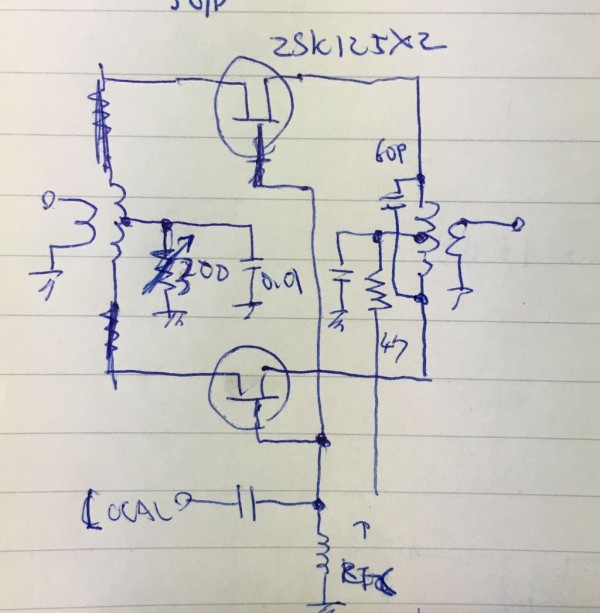 2SK125×2
60P
200
0.01
47
LOCAL
RFC